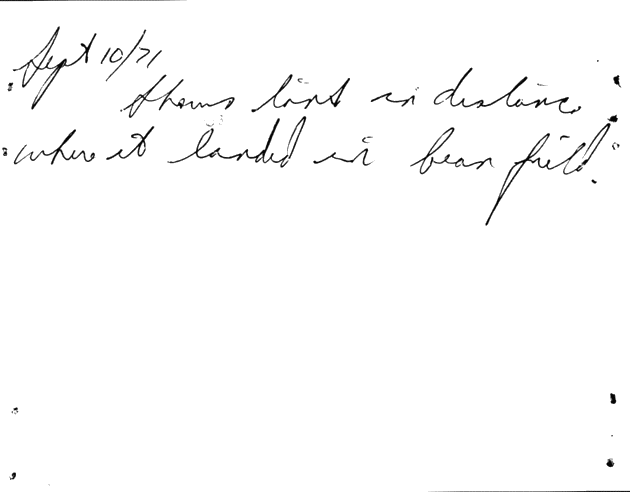 Sept 10/71
shows land in distance
where it landed in bean field.